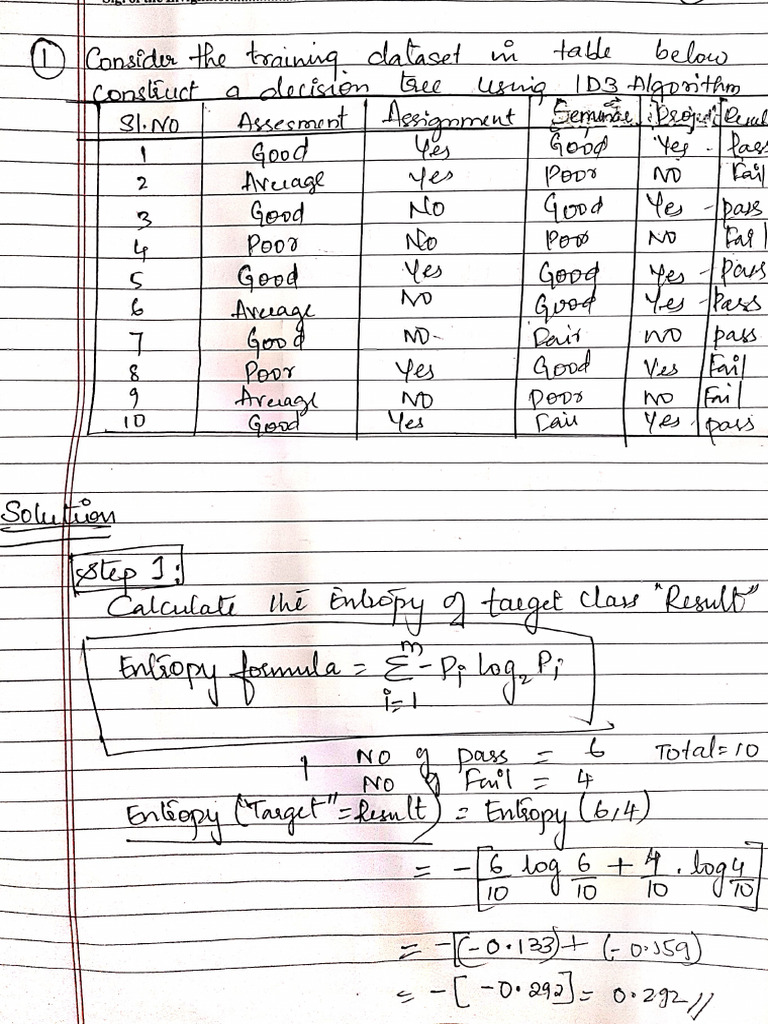 ① Consider the training dataset in table below
construct a decision tree using ID3 Algorithm
Sl.NO Assesment Assignment Seminar Project Result
1 Good Yes Good Yes - Pass
2 Average Yes Poor NO Fail
3 Good NO Good Yes - pass
4 Poor No Poor NO Fail
5 Good Yes Good Yes - Pass
6 Average NO Good Yes - Pass
7 Good NO- Fair NO pass
8 Poor Yes Good Yes Fail
9 Average NO Poor NO Fail
10 Good Yes Fair Yes pass
Solution
Step 1:
Calculate the Entropy of target class "Result"
Entropy formula = m∑i=1 - Pi log₂ Pi
NO of pass = 6 Total=10
NO of Fail = 4
Entropy ("Target"=Result) = Entropy (6,4)
= - [6/10 log 6/10 + 4/10 . log 4/10]
= -[(-0.133)+ (-0.159)
= -[-0.292] = 0.292 //